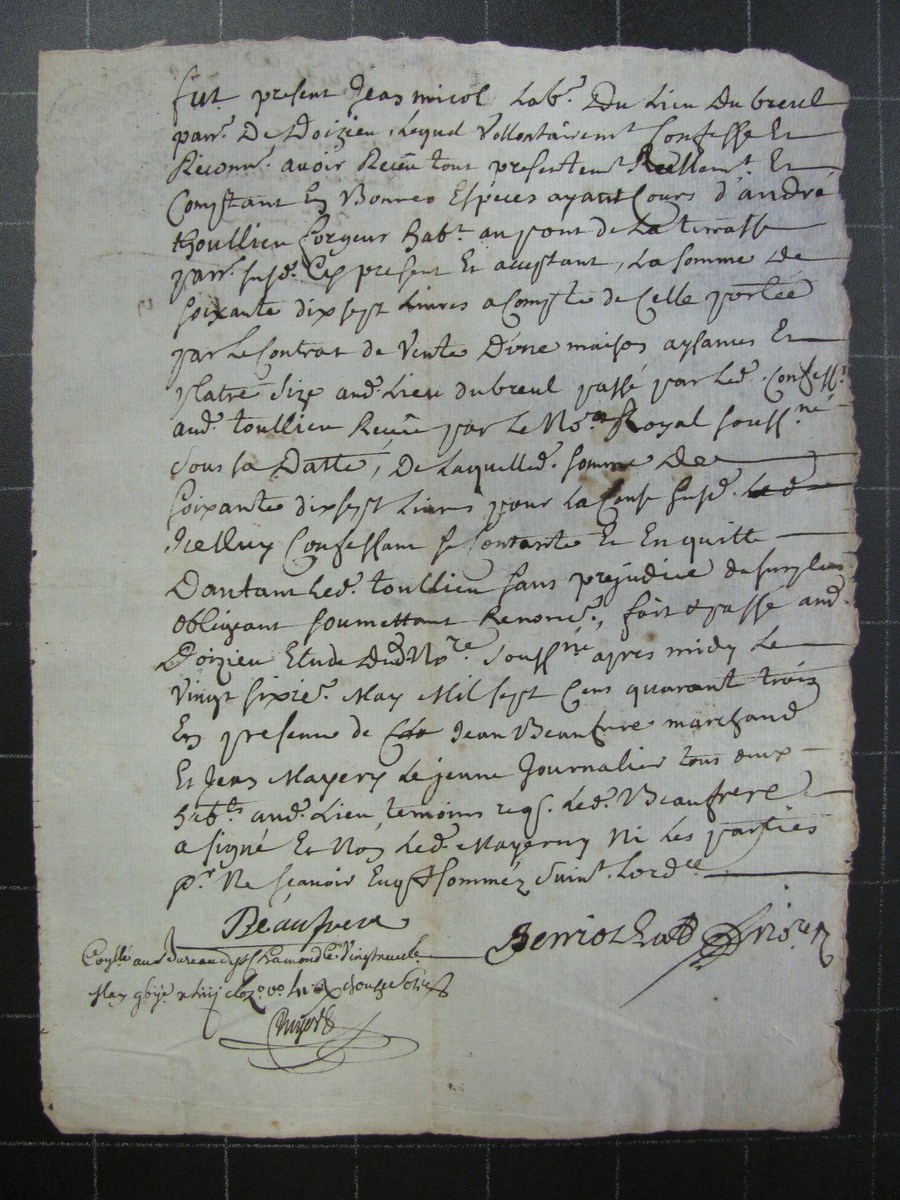 fut present Jean micol Labr. Du Lieu Du breul
parr. De Doizieu, Lequel Vollontairemt Confesse Et
Reconnt. avoir Receu tout presentemt Reellemt. Et
Comptant En Bonnes Espéces ayant Cours d'andré
thoullieu forgeur habt. au pont de La terrasse
parr. susd. Cy present Et aceptant, La somme de
soixante dix sept Livres a Compte de Celle portée
par Le Contrat de Vente D'une maison aysances Et
platre Size aud. Lieu du breul passé par Led. Confesst
aud. toullieu Receu par Le Nore. Royal soussné
sous sa Datte, De Laquelled. somme De
soixante dix sept Livres pour La Cause susd. Led
Icelluy Confessant se Contante Et En quitte
Dautant Led. toullieu sans prejudice du surplus
obligeant soumettant Renonct., fait & passé aud.
Doizieu Etude Dud Nore. soussné apres midy Le
Vingt sixie. May Mil sept Cens quarant trois
En presence de Jean Beaufrere marchand
Et Jean Mayery Le jeune Journalier tous deux
habts. aud. Lieu temoins reqs. Led. Beaufrere
a signé Et Non Led. Mayery Ni Les parties
pr. Ne sçavoir Enq. & sommés suivt. Lordce
Beaufrere
aud Bureau de st chamond Le Vingt neuf
May douze sols